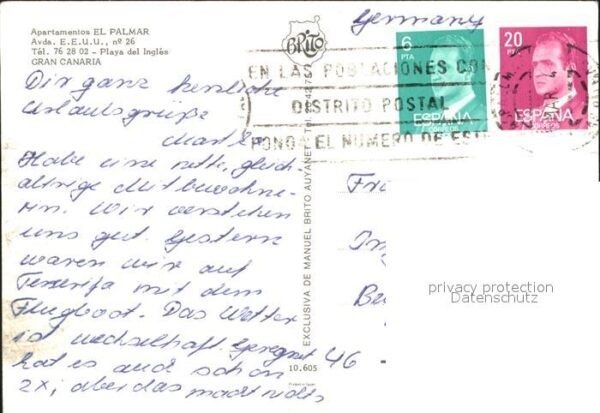 Apartamentos EL PALMAR
Avda. E.E.U.U., nº 26
Tél. 76 28 02 - Playa del Inglés
GRAN CANARIA
BRITO
Germany
6
PTA
ESPAÑA
CORREOS
20
PTA
ESPAÑA
CORREOS
EN LAS POBLACIONES CON
DISTRITO POSTAL
PONGA EL NUMERO DE ESTE
Dir ganz herzliche
Urlaubsgrüße
Habe eine nette, gleich-
altrige Mitbewohne-
rin. Wir verstehen
uns gut. Gestern
waren wir auf
Tenerifa mit dem
Flugboot. Das Wetter
ist wechselhaft. Geregnet
hat es auch schon
2x, aber das macht nichts
46
EXCLUSIVA DE MANUEL BRITO AUYANET
10.605
Printed in Spain
privacy protection
Datenschutz